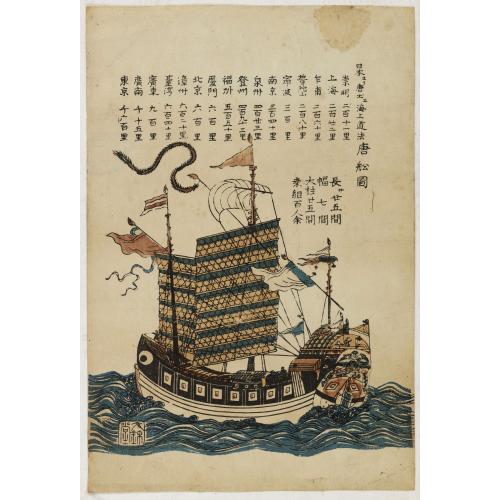 日本ヨリ唐土エ海上道法
唐舩圖
崇明 二百十一里
上海 二百廿二里
乍甫 二百六十里
普陀山 二百八十里
寧波 三百里
南京 三百四十里
泉州 四百廿三里
登州
福州 五百五十里
厦門 六百里
北京 六百里
漳州 六百二十里
臺湾 六百四十里
廣東 九百里
廣南 千十五里
東京 千六百里
長サ廿五間
幅 七間
大柱廿五間
乗組百人余